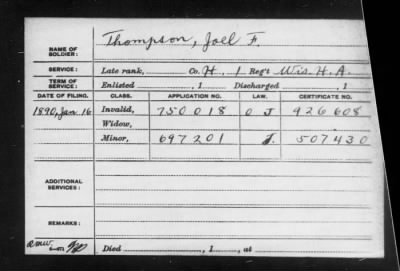 NAME OF SOLDIER: Thompson, Joel F.
SERVICE: Late rank, Co. H, 1 Reg't Wis. H. A.
TERM OF SERVICE: Enlisted , 1 Discharged , 1
DATE OF FILING. CLASS. APPLICATION NO. LAW. CERTIFICATE NO.
1890, Jan 16 Invalid, 750018 O J 926608
Widow,
Minor, 697201 J. 507430
ADDITIONAL SERVICES:
REMARKS:
amw
Died , 1 , at